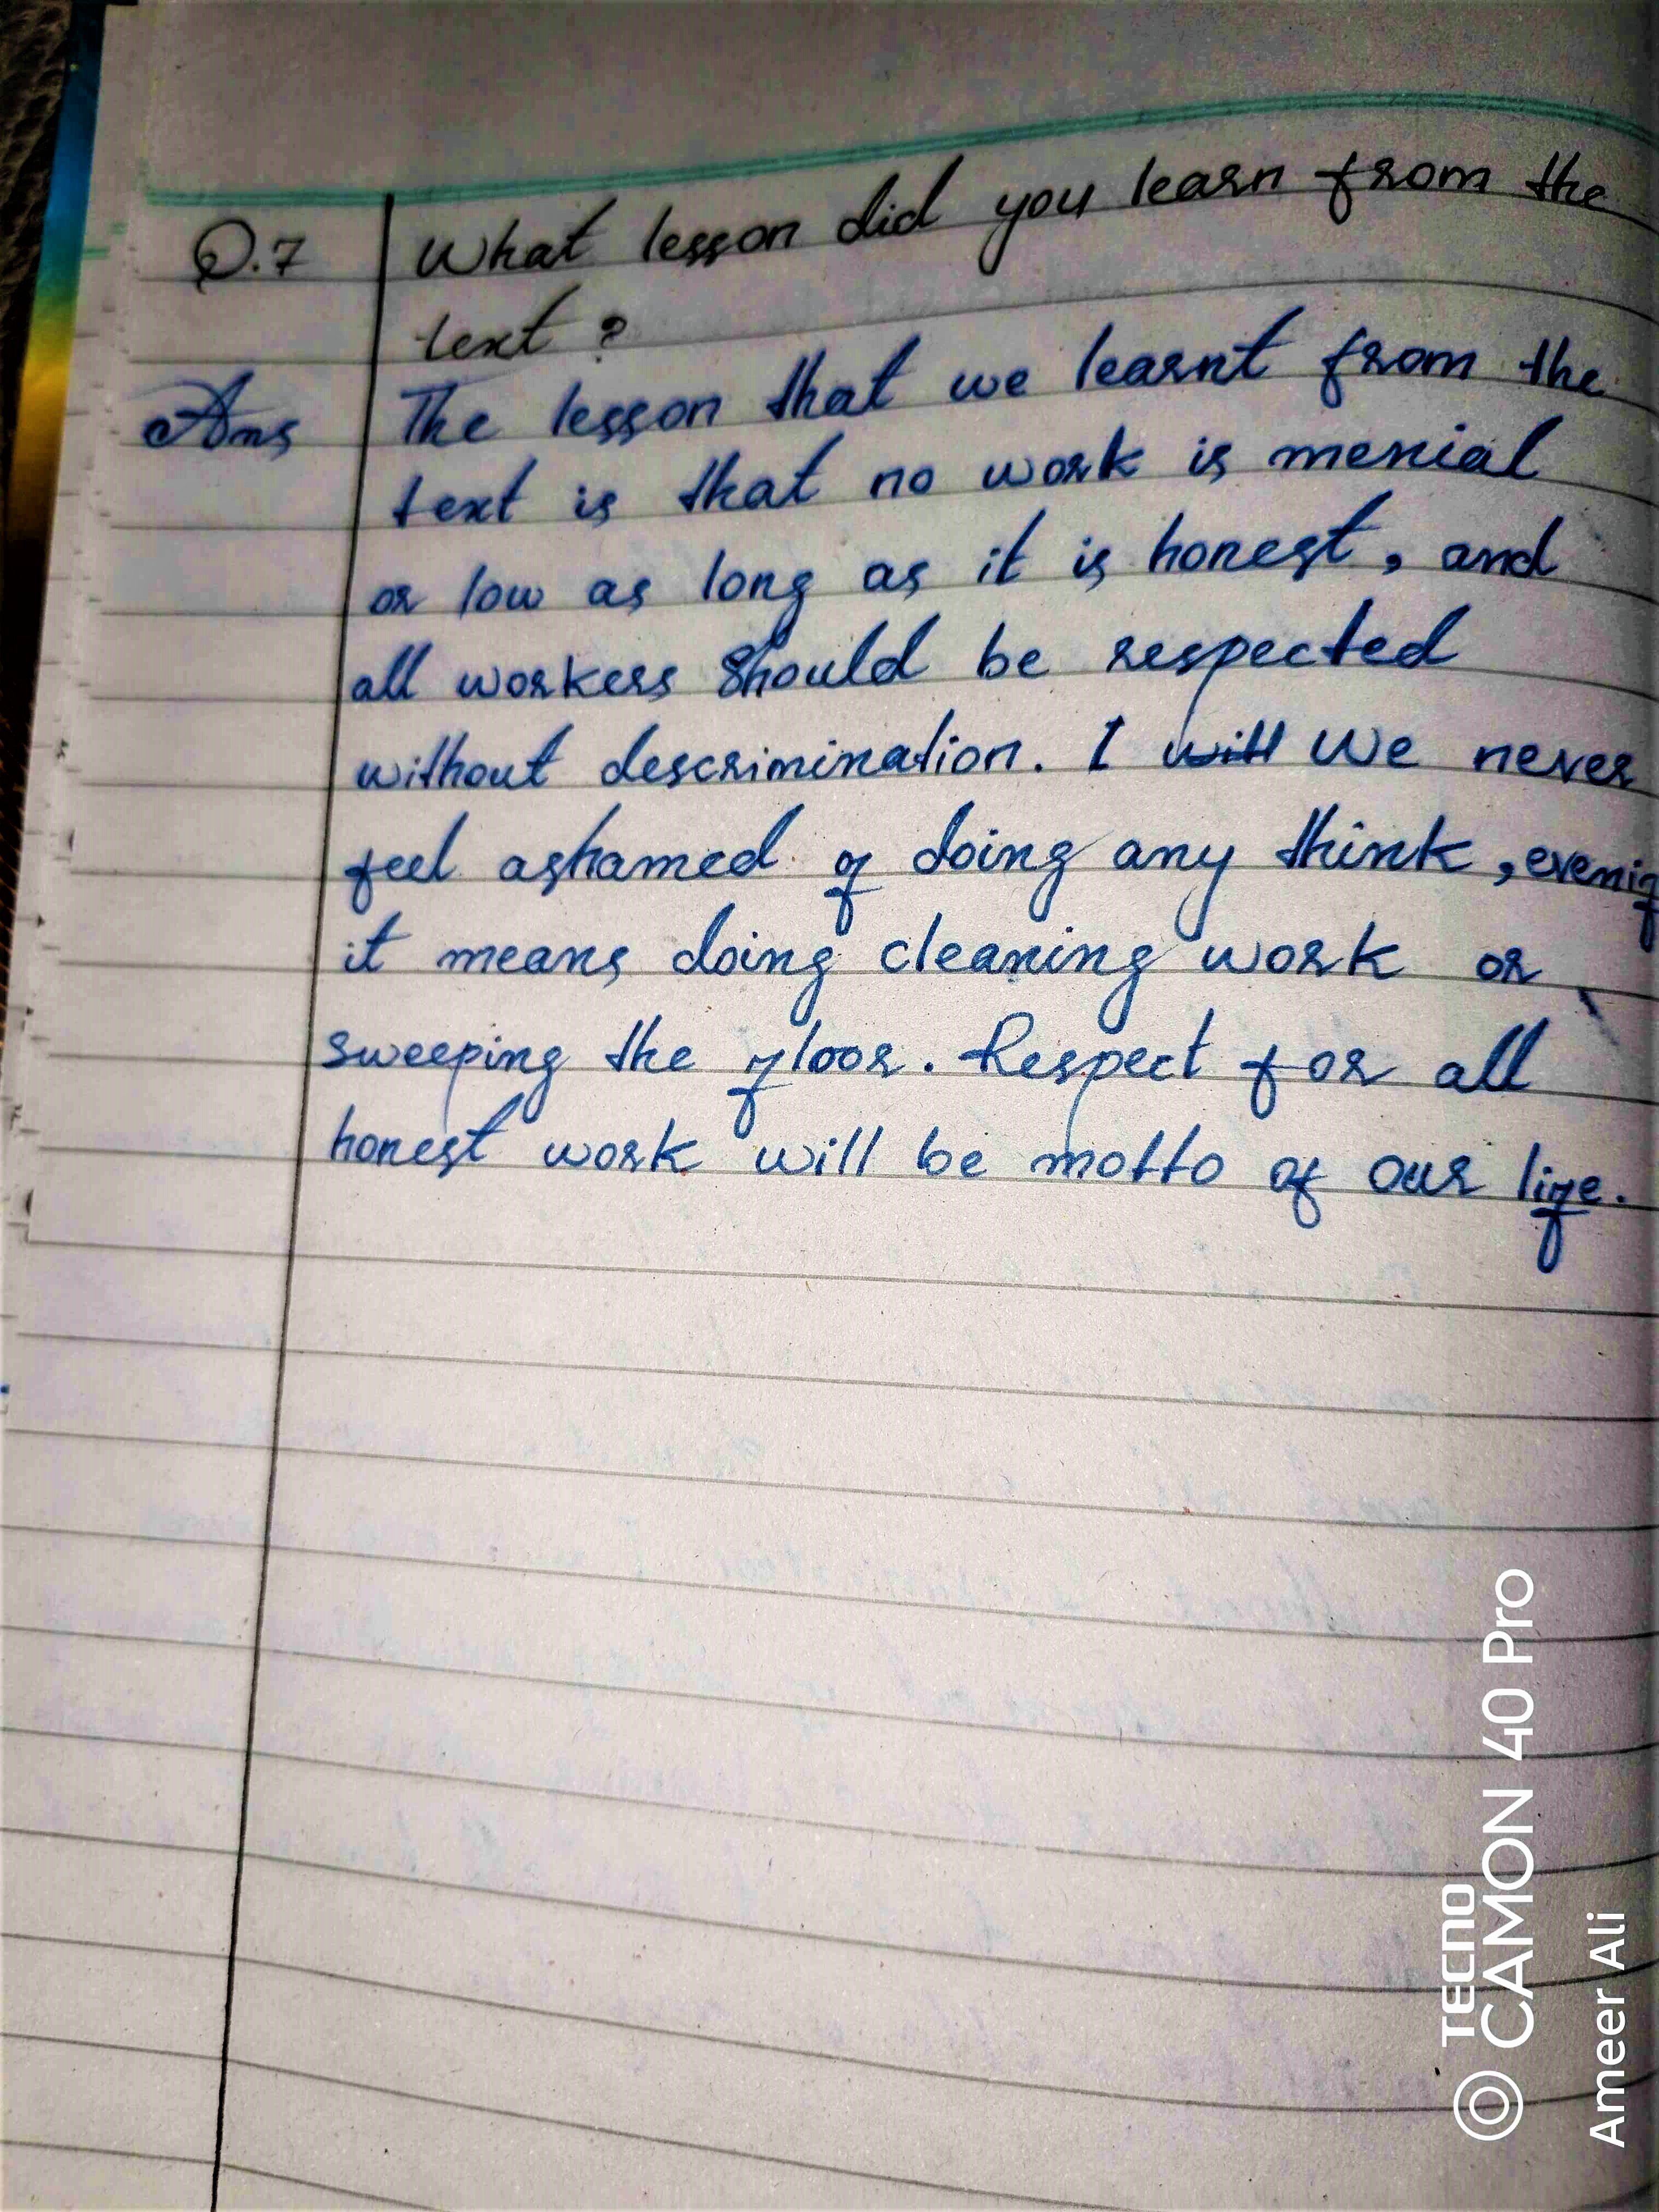 Q.7 What lesson did you learn from the
text ?
Ans The lesson that we learnt from the
text is that no work is menial
or low as long as it is honest, and
all workers should be respected
without descrimination. I will We never
feel ashamed of doing any think, evenif
it means doing cleaning work or
sweeping the floor. Respect for all
honest work will be motto of our life.
TECNO
CAMON 40 Pro
Ameer Ali